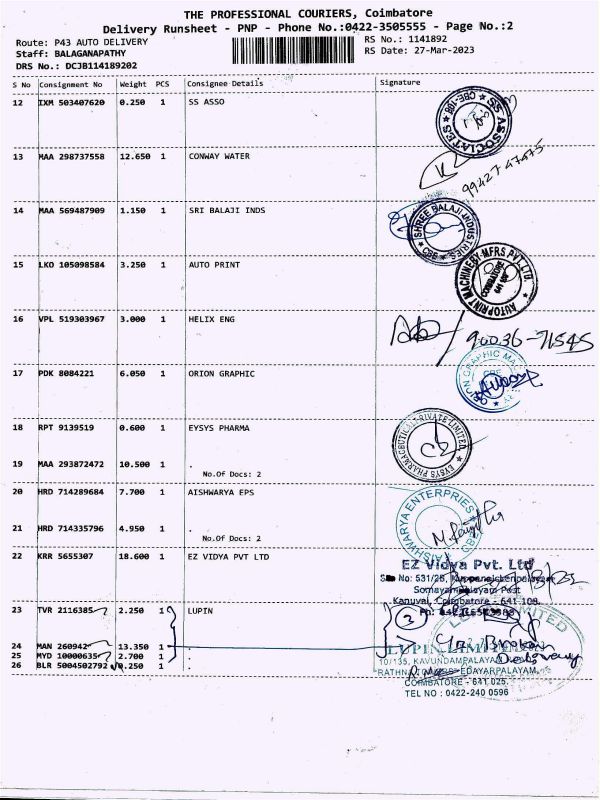 THE PROFESSIONAL COURIERS, Coimbatore
Delivery Runsheet - PNP - Phone No.:0422-3505555 - Page No.:2
Route: P43 AUTO DELIVERY
RS No.: 1141892
Staff: BALAGANAPATHY
RS Date: 27-Mar-2023
DRS No.: DCJB114189202
S No Consignment No Weight PCS Consignee Details Signature
12 IXM 503407620 0.250 1 SS ASSO
SS ASSOCIATES ★ CBE-108 ★
13 MAA 298737558 12.650 1 CONWAY WATER
9942747475
14 MAA 569487909 1.150 1 SRI BALAJI INDS
SHREE BALAJI INDUSTRIES ★ CBE ★
15 LKO 105098584 3.250 1 AUTO PRINT
AUTOPRINT MACHINERY MFRS PVT. LTD.
COIMBATORE
16 VPL 519303967 3.000 1 HELIX ENG
90036-71545
17 PDK 8084221 6.050 1 ORION GRAPHIC
ORION GRAPHIC
CBE
18 RPT 9139519 0.600 1 EYSYS PHARMA
EYSYS PHARMACEUTICAL PRIVATE LIMITED ★
19 MAA 293872472 10.500 1 .
No.Of Docs: 2
20 HRD 714289684 7.700 1 AISHWARYA EPS
AISHWARYA ENTERPRIES
21 HRD 714335796 4.950 1 .
No.Of Docs: 2
22 KRR 5655307 18.600 1 EZ VIDYA PVT LTD
EZ Vidya Pvt. Ltd
No: 531/2B, Kuppanaickenpalayam
Somayampalayam Post
Kanuvai, Coimbatore - 641 108.
23 TVR 2116385 2.250 1 LUPIN
3
24 MAN 260942 13.350 1 .
25 MYD 10000635 2.700 1 .
26 BLR 5004502792 0.250 1 .
Broken
LUPIN LIMITED
10/135, KAVUNDAMPALAYAM
EDAYARPALAYAM,
COIMBATORE - 641 025.
TEL NO : 0422-240 0596